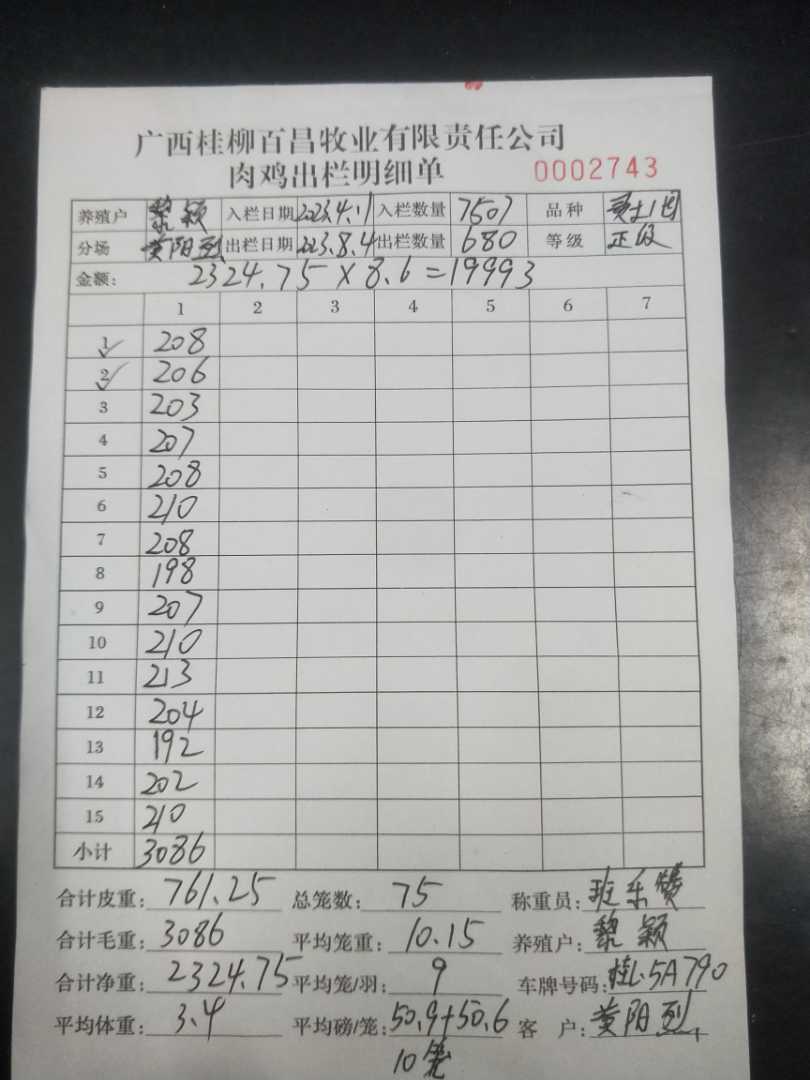 广西桂柳百昌牧业有限责任公司
肉鸡出栏明细单 0002743
养殖户 黎颖 入栏日期 2023.4.11 入栏数量 7507 品种
分场 黄阳烈 出栏日期 223.8.4 出栏数量 680 等级 正级
金额: 2324.75 X 8.6 = 19993
1 2 3 4 5 6 7
1 208
2 206
3 203
4 207
5 208
6 210
7 208
8 198
9 207
10 210
11 213
12 204
13 192
14 202
15 210
小计 3086
合计皮重: 761.25 总笼数: 75 称重员: 班乐赞
合计毛重: 3086 平均笼重: 10.15 养殖户: 黎颖
合计净重: 2324.75 平均笼/羽: 9 车牌号码: 桂L·5A790
平均体重: 3.4 平均磅/笼: 50.9+50.6 客户: 黄阳烈
10笼